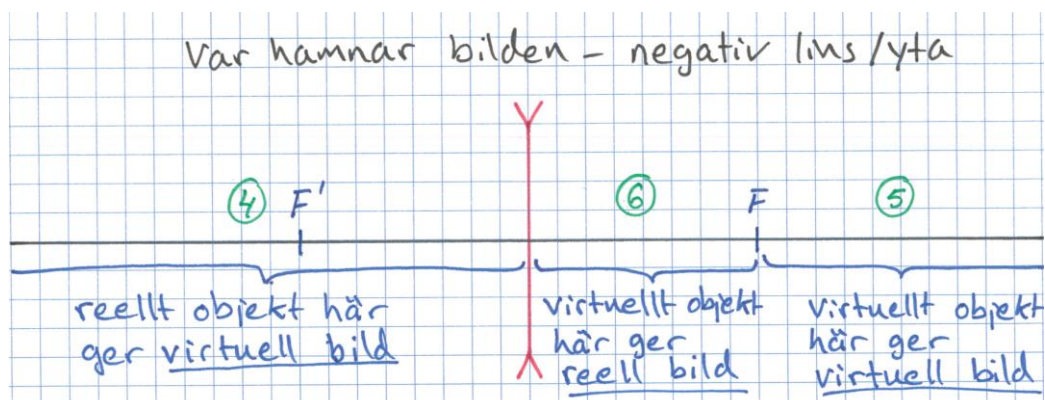 Var hamnar bilden – negativ lins/yta
④ F' ⑥ F ⑤
reellt objekt här
ger virtuell bild
virtuellt objekt
här ger
reell bild
virtuellt objekt
här ger
virtuell bild